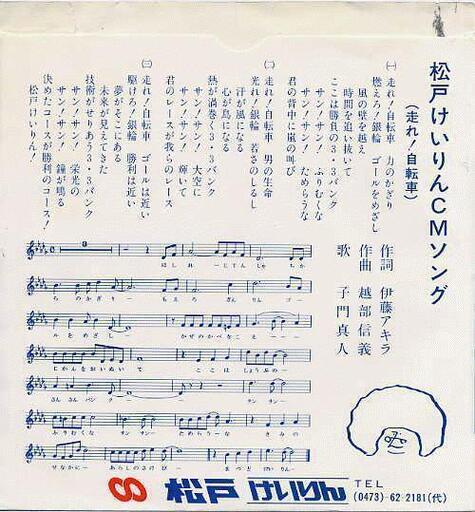 松戸けいりんCMソング
(走れ!自転車)
作詞 伊藤アキラ
作曲 越部信義
歌 子門真人
㈠走れ!自転車 力のかぎり
燃えろ!銀輪 ゴールをめざし
風の壁を越え
時間を追い抜いて
ここは勝負の3・3バンク
サン!サン! ふりむくな
サン!サン! ためらうな
君の背中に嵐の叫び
㈡走れ!自転車 男の生命
光れ!銀輪 若さのしるし
汗が風になる
心が鳥になる
熱が渦巻く3・3バンク
サン!サン! 大空に
サン!サン! 輝いて
君のレースが我らのレース
㈢走れ!自転車 ゴールは近い
駆けろ!銀輪 勝利は近い
夢がそこにある
未来が見えてきた
技術がせりあう3・3バンク
サン!サン! 栄光の
サン!サン! 鐘が鳴る
決めたコースが勝利のコース!
松戸けいりん!
はしれ ーじてん しゃ ちか
らのかぎりー もえろ ぎんりん ゴー
ルをめざしー かぜのかべをこえーーー
じかんをおいぬいて ここは しょうぶの
さんさん バンク サン サン
ふりむくな サンサン ためらうーな きみの
せなかにー あらしのさけびー まつど けいりん
松戸けいりん
TEL
(0473)-62-2181(代)